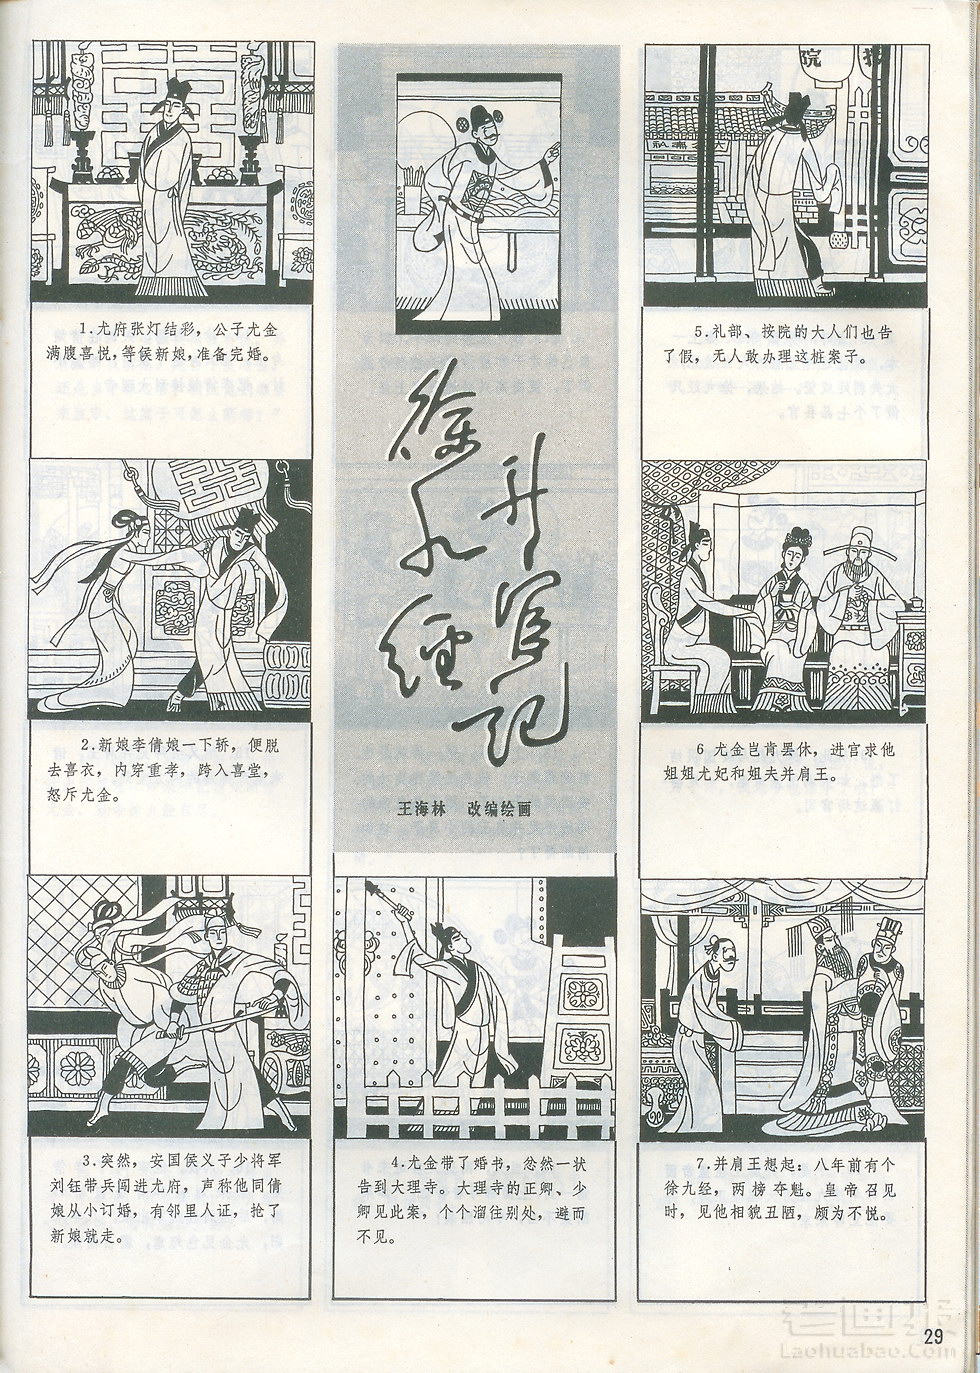 1.尤府张灯结彩，公子尤金
满腹喜悦，等侯新娘，准备完婚。
2.新娘李倩娘一下轿，便脱
去喜衣，内穿重孝，跨入喜堂，
怒斥尤金。
3.突然，安国侯义子少将军
刘钰带兵闯进尤府，声称他同倩
娘从小订婚，有邻里人证，抢了
新娘就走。
徐九经
升官记
王海林　改编绘画
4.尤金带了婚书，忿然一状
告到大理寺。大理寺的正卿、少
卿见此案，个个溜往别处，避而
不见。
院
按
5.礼部、按院的大人们也告
了假，无人敢办理这桩案子。
6 尤金岂肯罢休，进宫求他
姐姐尤妃和姐夫并肩王。
7.并肩王想起：八年前有个
徐九经，两榜夺魁。皇帝召见
时，见他相貌丑陋，颇为不悦。
29
老画报
Laohuabao.Com